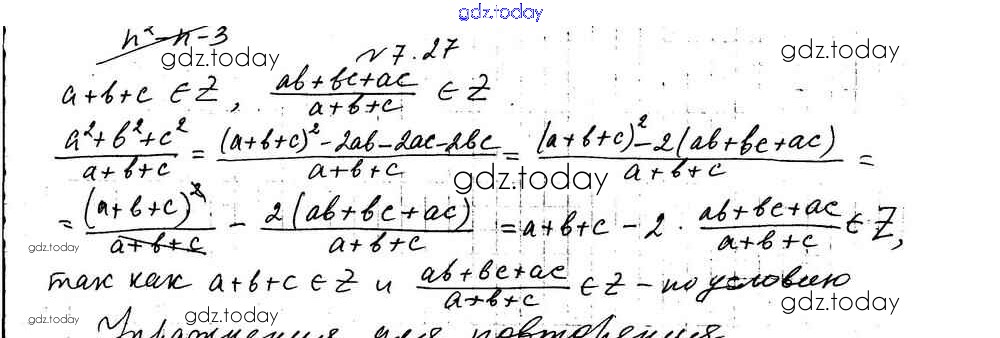 gdz.today
n² - n - 3
gdz.today
gdz.today
№ 7.27
a+b+c ∈ Z, (ab+bc+ac)/(a+b+c) ∈ Z
(a²+b²+c²)/(a+b+c) = ((a+b+c)² - 2ab - 2ac - 2bc)/(a+b+c) = ((a+b+c)² - 2(ab+bc+ac))/(a+b+c) =
gdz.today
= (a+b+c)²/(a+b+c) - 2(ab+bc+ac)/(a+b+c) = a+b+c - 2 · (ab+bc+ac)/(a+b+c) ∈ Z,
gdz.today
gdz.today
так как a+b+c ∈ Z и (ab+bc+ac)/(a+b+c) ∈ Z - по условию
gdz.today
gdz.today
gdz.today
Упражнения для повторения